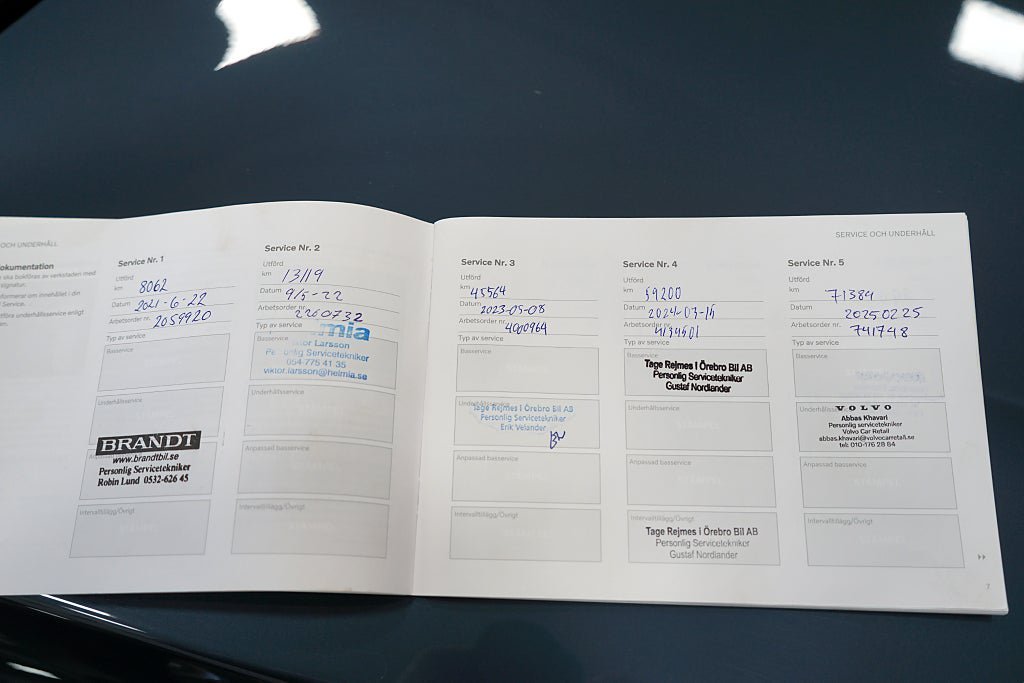 OCH UNDERHÅLL
okumentation
ska bokföras av verkstaden med
signatur.
formerar om innehållet i din
Service.
tföra underhållsservice enligt
en.
Service Nr. 1
Utförd
km 8062
Datum 2021-6-22
Arbetsorder nr. 2059920
Typ av service
Basservice
Underhållsservice
BRANDT
www.brandtbil.se
Personlig Servicetekniker
Robin Lund 0532-626 45
Intervalltillägg/Övrigt
Service Nr. 2
Utförd
km 13119
Datum 9/5-22
Arbetsorder nr. 2260732
Typ av service
Basservice
mia
tor Larsson
Personlig Servicetekniker
054-775 41 35
viktor.larsson@helmia.se
Underhållsservice
Anpassad basservice
Intervalltillägg/Övrigt
Service Nr. 3
Utförd
km 45564
Datum 2023-05-08
Arbetsorder nr. 4000964
Typ av service
Basservice
Underhållsservice
Tage Rejmes i Örebro Bil AB
Personlig Servicetekniker
Erik Velander
Anpassad basservice
Intervalltillägg/Övrigt
SERVICE OCH UNDERHÅLL
Service Nr. 4
Utförd
km 59200
Datum 2024-03-14
Arbetsorder nr.
Typ av service
Basservice
Tage Rejmes i Örebro Bil AB
Personlig Servicetekniker
Gustaf Nordlander
Underhållsservice
Anpassad basservice
STÄMPEL
Intervalltillägg/Övrigt
Tage Rejmes i Örebro Bil AB
Personlig Servicetekniker
Gustaf Nordlander
Service Nr. 5
Utförd
km 71389
Datum 20250225
Arbetsorder nr. 741748
Typ av service
Basservice
Underhållsservice
VOLVO
Abbas Khavari
Personlig servicetekniker
Volvo Car Retail
abbas.khavari@volvocarretail.se
tel: 010-176 28 84
Anpassad basservice
STÄMPEL
Intervalltillägg/Övrigt
7